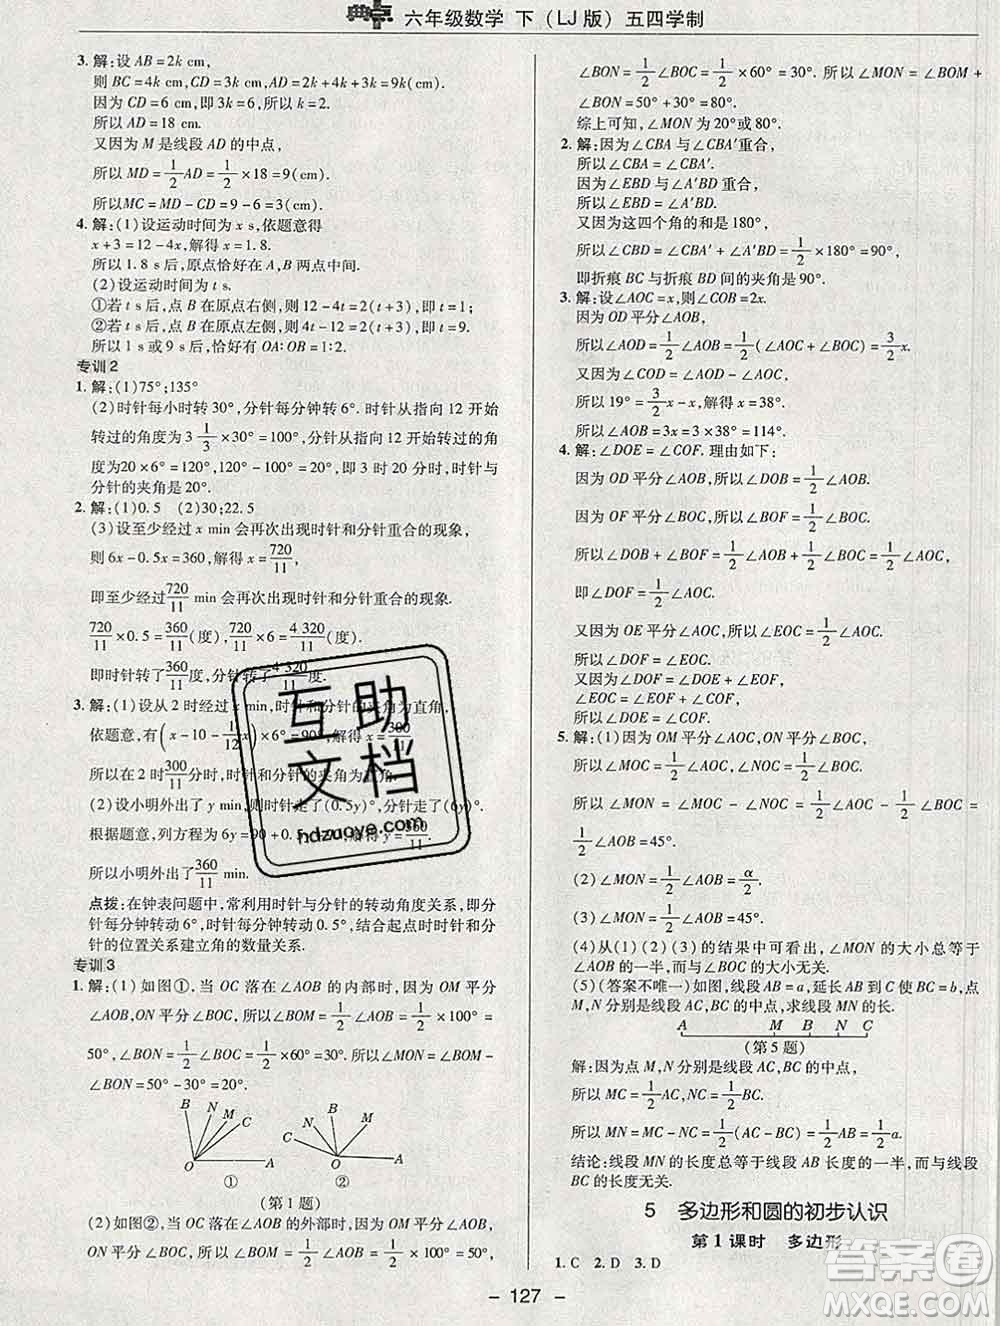 典点 六年级数学 下（LJ版）五四学制
3. 解:设 AB=2k cm,
则 BC=4k cm,CD=3k cm,AD=2k+4k+3k=9k(cm).
因为 CD=6 cm,即 3k=6,所以 k=2.
所以 AD=18 cm.
又因为 M 是线段 AD 的中点,
所以 MD=1/2 AD=1/2×18=9(cm).
所以MC=MD-CD=9-6=3(cm).
4. 解:(1)设运动时间为 x s,依题意得
x+3=12-4x,解得 x=1.8.
所以1.8 s后,原点恰好在 A,B 两点中间.
(2)设运动时间为 t s.
①若 t s后,点 B 在原点右侧,则12-4t=2(t+3),即 t=1;
②若 t s后,点 B 在原点左侧,则4t-12=2(t+3),即 t=9.
所以 1 s或 9 s后,恰好有 OA∶OB=1∶2.
专训2
1. 解:(1)75°;135°
(2)时针每小时转 30°,分针每分钟转 6°. 时针从指向 12 开始
转过的角度为 3 1/3×30°=100°,分针从指向 12 开始转过的角
度为20×6°=120°,120°-100°=20°,即 3 时 20 分时,时针与
分针的夹角是 20°.
2. 解:(1)0.5 (2)30;22.5
(3)设至少经过 x min 会再次出现时针和分针重合的现象,
则 6x-0.5x=360,解得 x=720/11,
即至少经过 720/11 min 会再次出现时针和分针重合的现象.
720/11×0.5=360/11(度),720/11×6=4 320/11(度),
即时针转了 360/11 度,分针转了 4 320/11 度.
3. 解:(1)设从 2 时经过 x min,时针和分针的夹角为直角.
依题意,有(x-10-1/12 x)×6°=90°,解得 x=300/11.
所以在 2 时 300/11 分时,时针和分针的夹角为直角.
(2)设小明外出了 y min,则时针走了(0.5y)°,分针走了(6y)°.
根据题意,列方程为 6y=90+0.5 90,解得 y=360/11.
所以小明外出了 360/11 min.
点拨:在钟表问题中,常利用时针与分针的转动角度关系,即分
针每分钟转动 6°,时针每分钟转动 0.5°,结合起点时时针和分
针的位置关系建立角的数量关系.
专训3
1. 解:(1)如图①,当 OC 落在∠AOB 的内部时,因为 OM 平分
∠AOB,ON平分∠BOC,所以∠BOM=1/2∠AOB=1/2×100°=
50°,∠BON=1/2∠BOC=1/2×60°=30°. 所以∠MON=∠BOM-
∠BON=50°-30°=20°.
B N M C O A
①
B M N C O A
②
(第 1 题)
(2)如图②,当 OC 落在∠AOB 的外部时,因为 OM 平分
∠AOB,ON平分∠BOC,所以∠BOM=1/2∠AOB=1/2×100°=50°,
∠BON=1/2∠BOC=1/2×60°=30°. 所以∠MON=∠BOM+
∠BON=50°+30°=80°.
综上可知,∠MON 为 20°或 80°.
2. 解:因为∠CBA 与∠CBA′重合,
所以∠CBA=∠CBA′.
因为∠EBD 与∠A′BD 重合,
所以∠EBD=∠A′BD.
又因为这四个角的和是 180°,
所以∠CBD=∠CBA′+∠A′BD=1/2×180°=90°,
即折痕 BC 与折痕 BD 间的夹角是 90°.
3. 解:设∠AOC=x,则∠COB=2x.
因为 OD 平分∠AOB,
所以∠AOD=1/2∠AOB=1/2(∠AOC+∠BOC)=3/2 x.
又因为∠COD=∠AOD-∠AOC,
所以 19°=3/2 x-x,解得 x=38°.
所以∠AOB=3x=3×38°=114°.
4. 解:∠DOE=∠COF. 理由如下:
因为 OD 平分∠AOB,所以∠DOB=1/2∠AOB.
因为 OF 平分∠BOC,所以∠BOF=1/2∠BOC,
所以∠DOB+∠BOF=1/2∠AOB+1/2∠BOC=1/2∠AOC,
即∠DOF=1/2∠AOC.
又因为 OE 平分∠AOC,所以∠EOC=1/2∠AOC,
所以∠DOF=∠EOC.
又因为∠DOF=∠DOE+∠EOF,
∠EOC=∠EOF+∠COF,
所以∠DOE=∠COF.
5. 解:(1)因为 OM 平分∠AOC,ON平分∠BOC,
所以∠MOC=1/2∠AOC,∠NOC=1/2∠BOC.
所以∠MON=∠MOC-∠NOC=1/2∠AOC-1/2∠BOC=
1/2∠AOB=45°.
(2)∠MON=1/2∠AOB=α/2.
(3)∠MON=1/2∠AOB=45°.
(4)从(1)(2)(3)的结果中可看出,∠MON 的大小总等于
∠AOB 的一半,而与∠BOC的大小无关.
(5)(答案不唯一)如图,线段 AB=a,延长 AB 到 C 使 BC=b,点
M,N 分别是线段 AC,BC 的中点,求线段 MN 的长.
A M B N C
(第 5 题)
解:因为点 M,N 分别是线段 AC,BC 的中点,
所以 MC=1/2 AC,NC=1/2 BC.
所以 MN=MC-NC=1/2(AC-BC)=1/2 AB=1/2 a.
结论:线段 MN 的长度总等于线段 AB 长度的一半,而与线段
BC的长度无关.
5 多边形和圆的初步认识
第 1 课时 多边形
1. C 2. D 3. D
- 127 -
互助文档
hdzuoye.com
答案圈
MXQE.COM